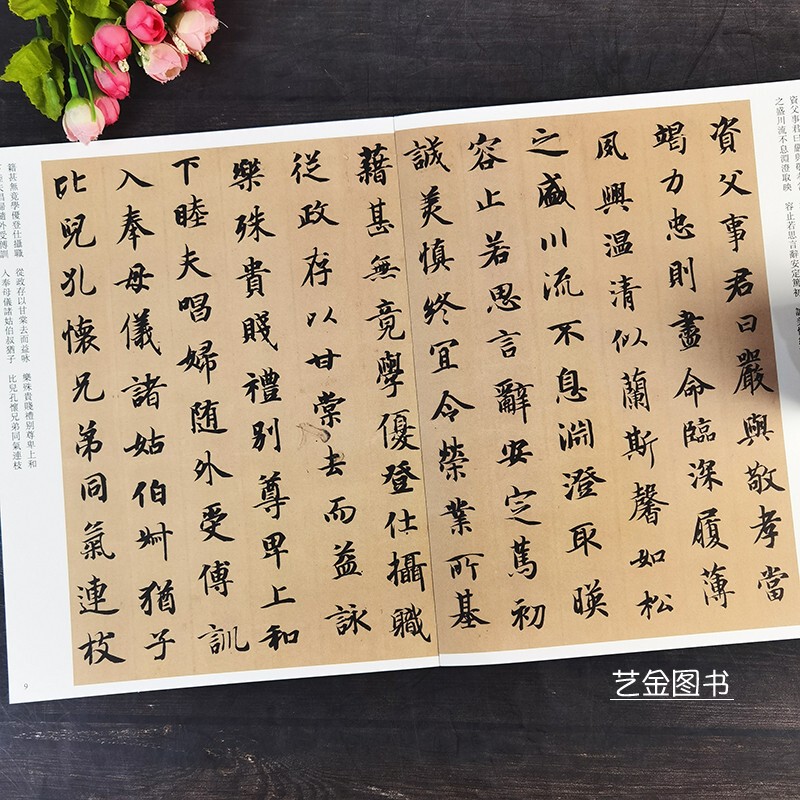 資父事君曰嚴與敬
之盛川流不息淵澄取暎 容止若思言辭安定篤初
資父事君曰嚴與敬孝當
竭力忠則盡命臨深履薄
夙興温清似蘭斯馨如松
之盛川流不息淵澄取暎
容止若思言辭安定篤初
誠美慎終宜令榮業所基
藉甚無竟學優登仕攝職
從政存以甘棠去而益詠
樂殊貴賤禮別尊卑上和
下睦夫唱婦随外受傅訓
入奉母儀諸姑伯叔猶子
比兒孔懷兄弟同氣連枝
籍甚無竟學優登仕攝職 從政存以甘棠去而益咏 樂殊貴賤禮別尊卑上和
夫唱婦隨外受傅訓 入奉母儀諸姑伯叔猶子 比兒孔懷兄弟同氣連枝
9
艺金图书